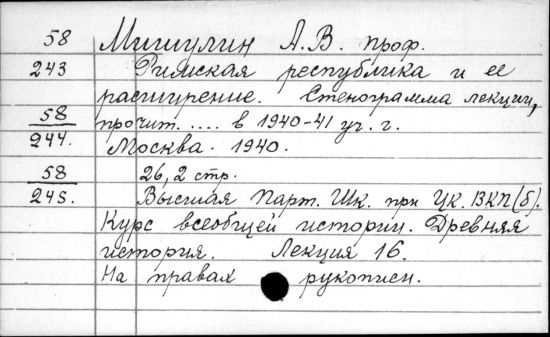 58 Мишулин А.В. проф.
243 Римская республика и ее
расширение. Стенограмма лекции,
58 прочит. .... в 1940-41 уч. г.
244. Москва. 1940.
58 26, 2 стр.
245. Высшая Парт. Шк. при Цк. ВКП(б).
Курс всеобщей истории. Древняя
история. Лекция 16.
На правах рукописи.